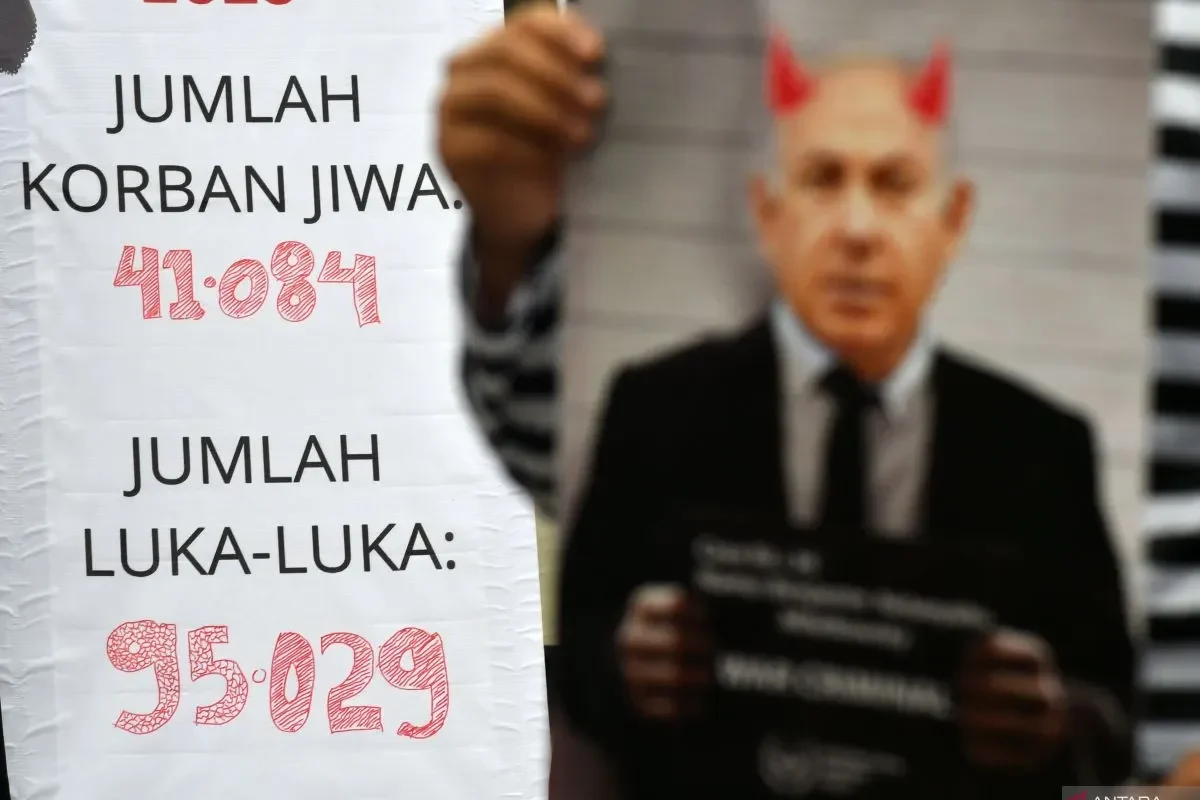 JUMLAH
KORBAN JIWA.
41.084
JUMLAH
LUKA-LUKA:
95.029
WAR CRIMINAL
ANTARA